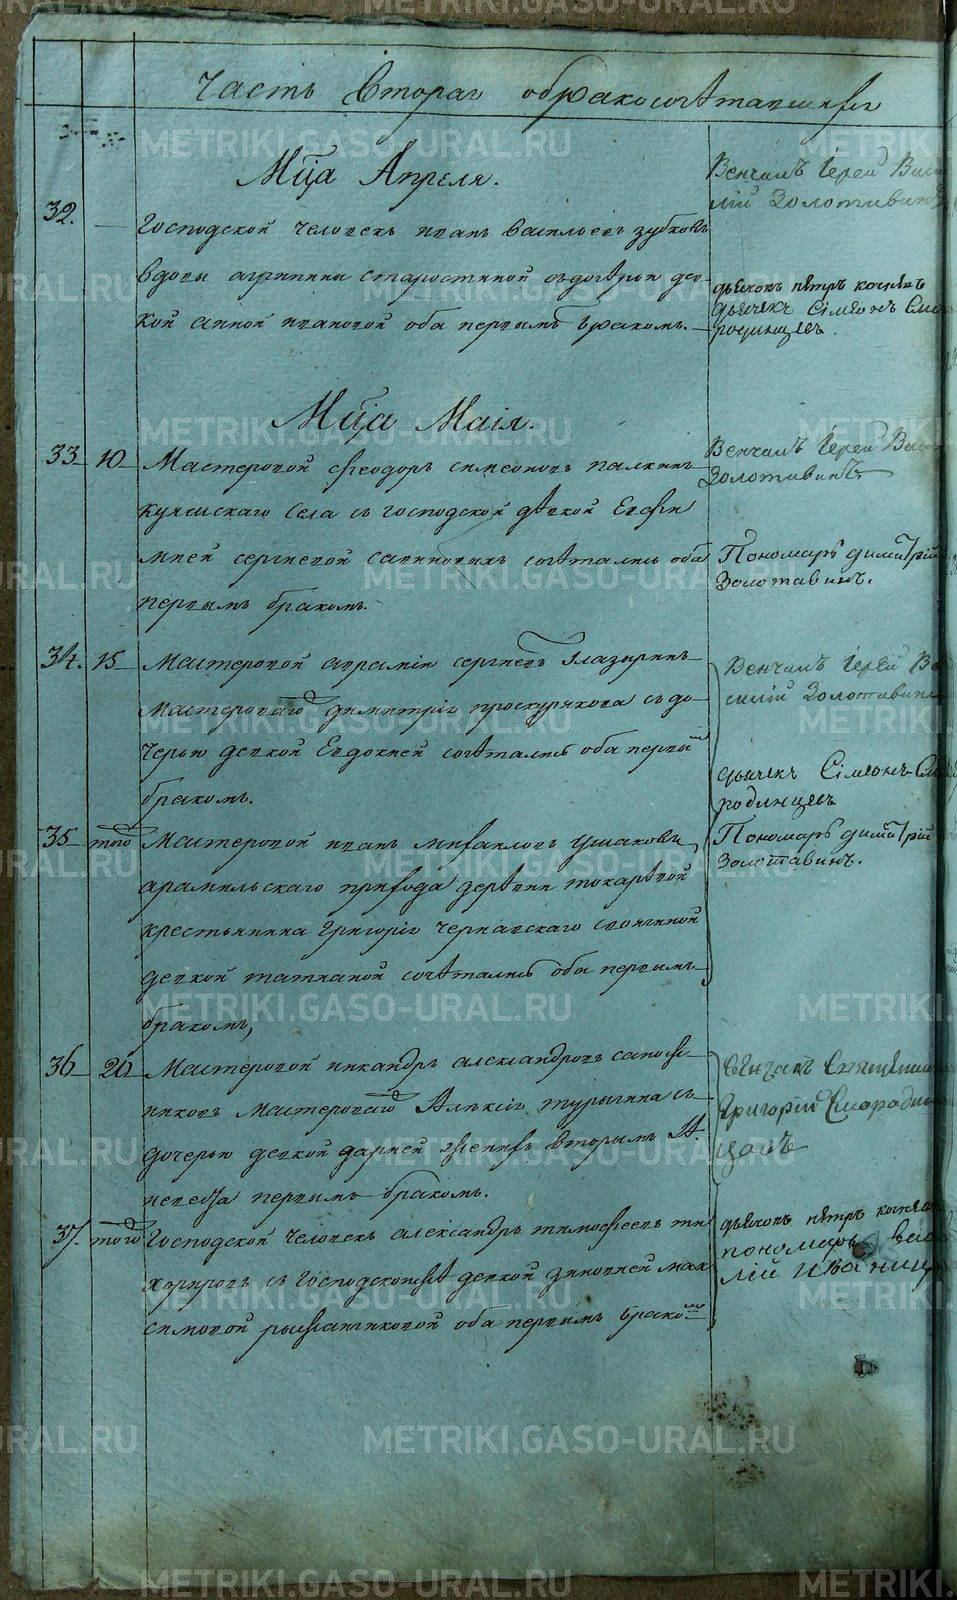 Часть вторая о бракосочетавшихся
Мца Апреля.
32.
Господской человекъ иванъ васильевъ зубковъ
вдовы агрипины старостиной съ дочерью дев-
кой анной ивановой оба первымъ бракомъ.
Венчалъ Іерей Васи
лій Золотавинъ
дьяконъ пѣтръ
дьячекъ Сімеонъ Смо
родинцевъ.
Мца Маія.
33 10 Мастеровой феодоръ симеоновъ палкинъ
села съ господской дѣвкой Евфи
мией сергиевой сочетались оба
первымъ бракомъ.
Венчалъ Іерей Васи
Золотавинъ
Пономарь димитрій
Золотавинъ.
34. 15 Мастеровой аврамій сергиевъ Глазыринъ
Мастероваго димитрія проскурякова съ до-
черью девкой Евдокией сочетались оба первы
бракомъ.
Венчалъ Іерей Ва
силій Золотавинъ
дьячекъ Сімеонъ Смо
родинцевъ
35 того Мастеровой иванъ михаиловъ ушаковъ,
арамильскаго прихода деревни токаревой
крестьянина Григорія чернавскаго
девкой татианой сочетались оба первымъ
бракомъ,
Пономарь димитрій
Золотавинъ.
36 20 Мастеровой никандръ александровъ сапож
никовъ Мастероваго Алексія турыгина съ
дочерью девкой дарией женихъ вторымъ А.
невеста первымъ бракомъ.
вѣнчалъ Священни
Григорій Смородин
цовъ
37. того Господской человекъ александръ тимофеевъ ти
хоировъ съ господскою девкой зиновией мак
симовой оба первымъ брако
дьяконъ пѣтръ
пономарь васи
лій Иваницкі
METRIKI.GASO-URAL.RU